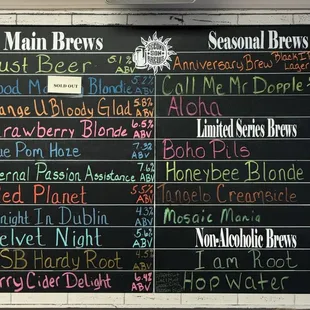 Main Brews
ust Beer 5.1% ABV
ood M Blondie 5.2% ABV
SOLD OUT
ange U Bloody Glad 5.8% ABV
rawberry Blonde 6.5% ABV
ue Pom Haze 7.3% ABV
ernal Passion Assistance 7.6% ABV
ed Planet 5.5% ABV
night In Dublin 4.3% ABV
elvet Night 5.6% ABV
SB Hardy Root 4.5% ABV
rry Cider Delight 6.4% ABV
Seasonal Brews
Anniversary Brew Black I Lager
Call Me Mr Dopple
Aloha
Limited Series Brews
Boho Pils
Honeybee Blonde
Tangelo Creamsicle
Mosaic Mania
Non-Alcoholic Brews
I am Root
Hop Water